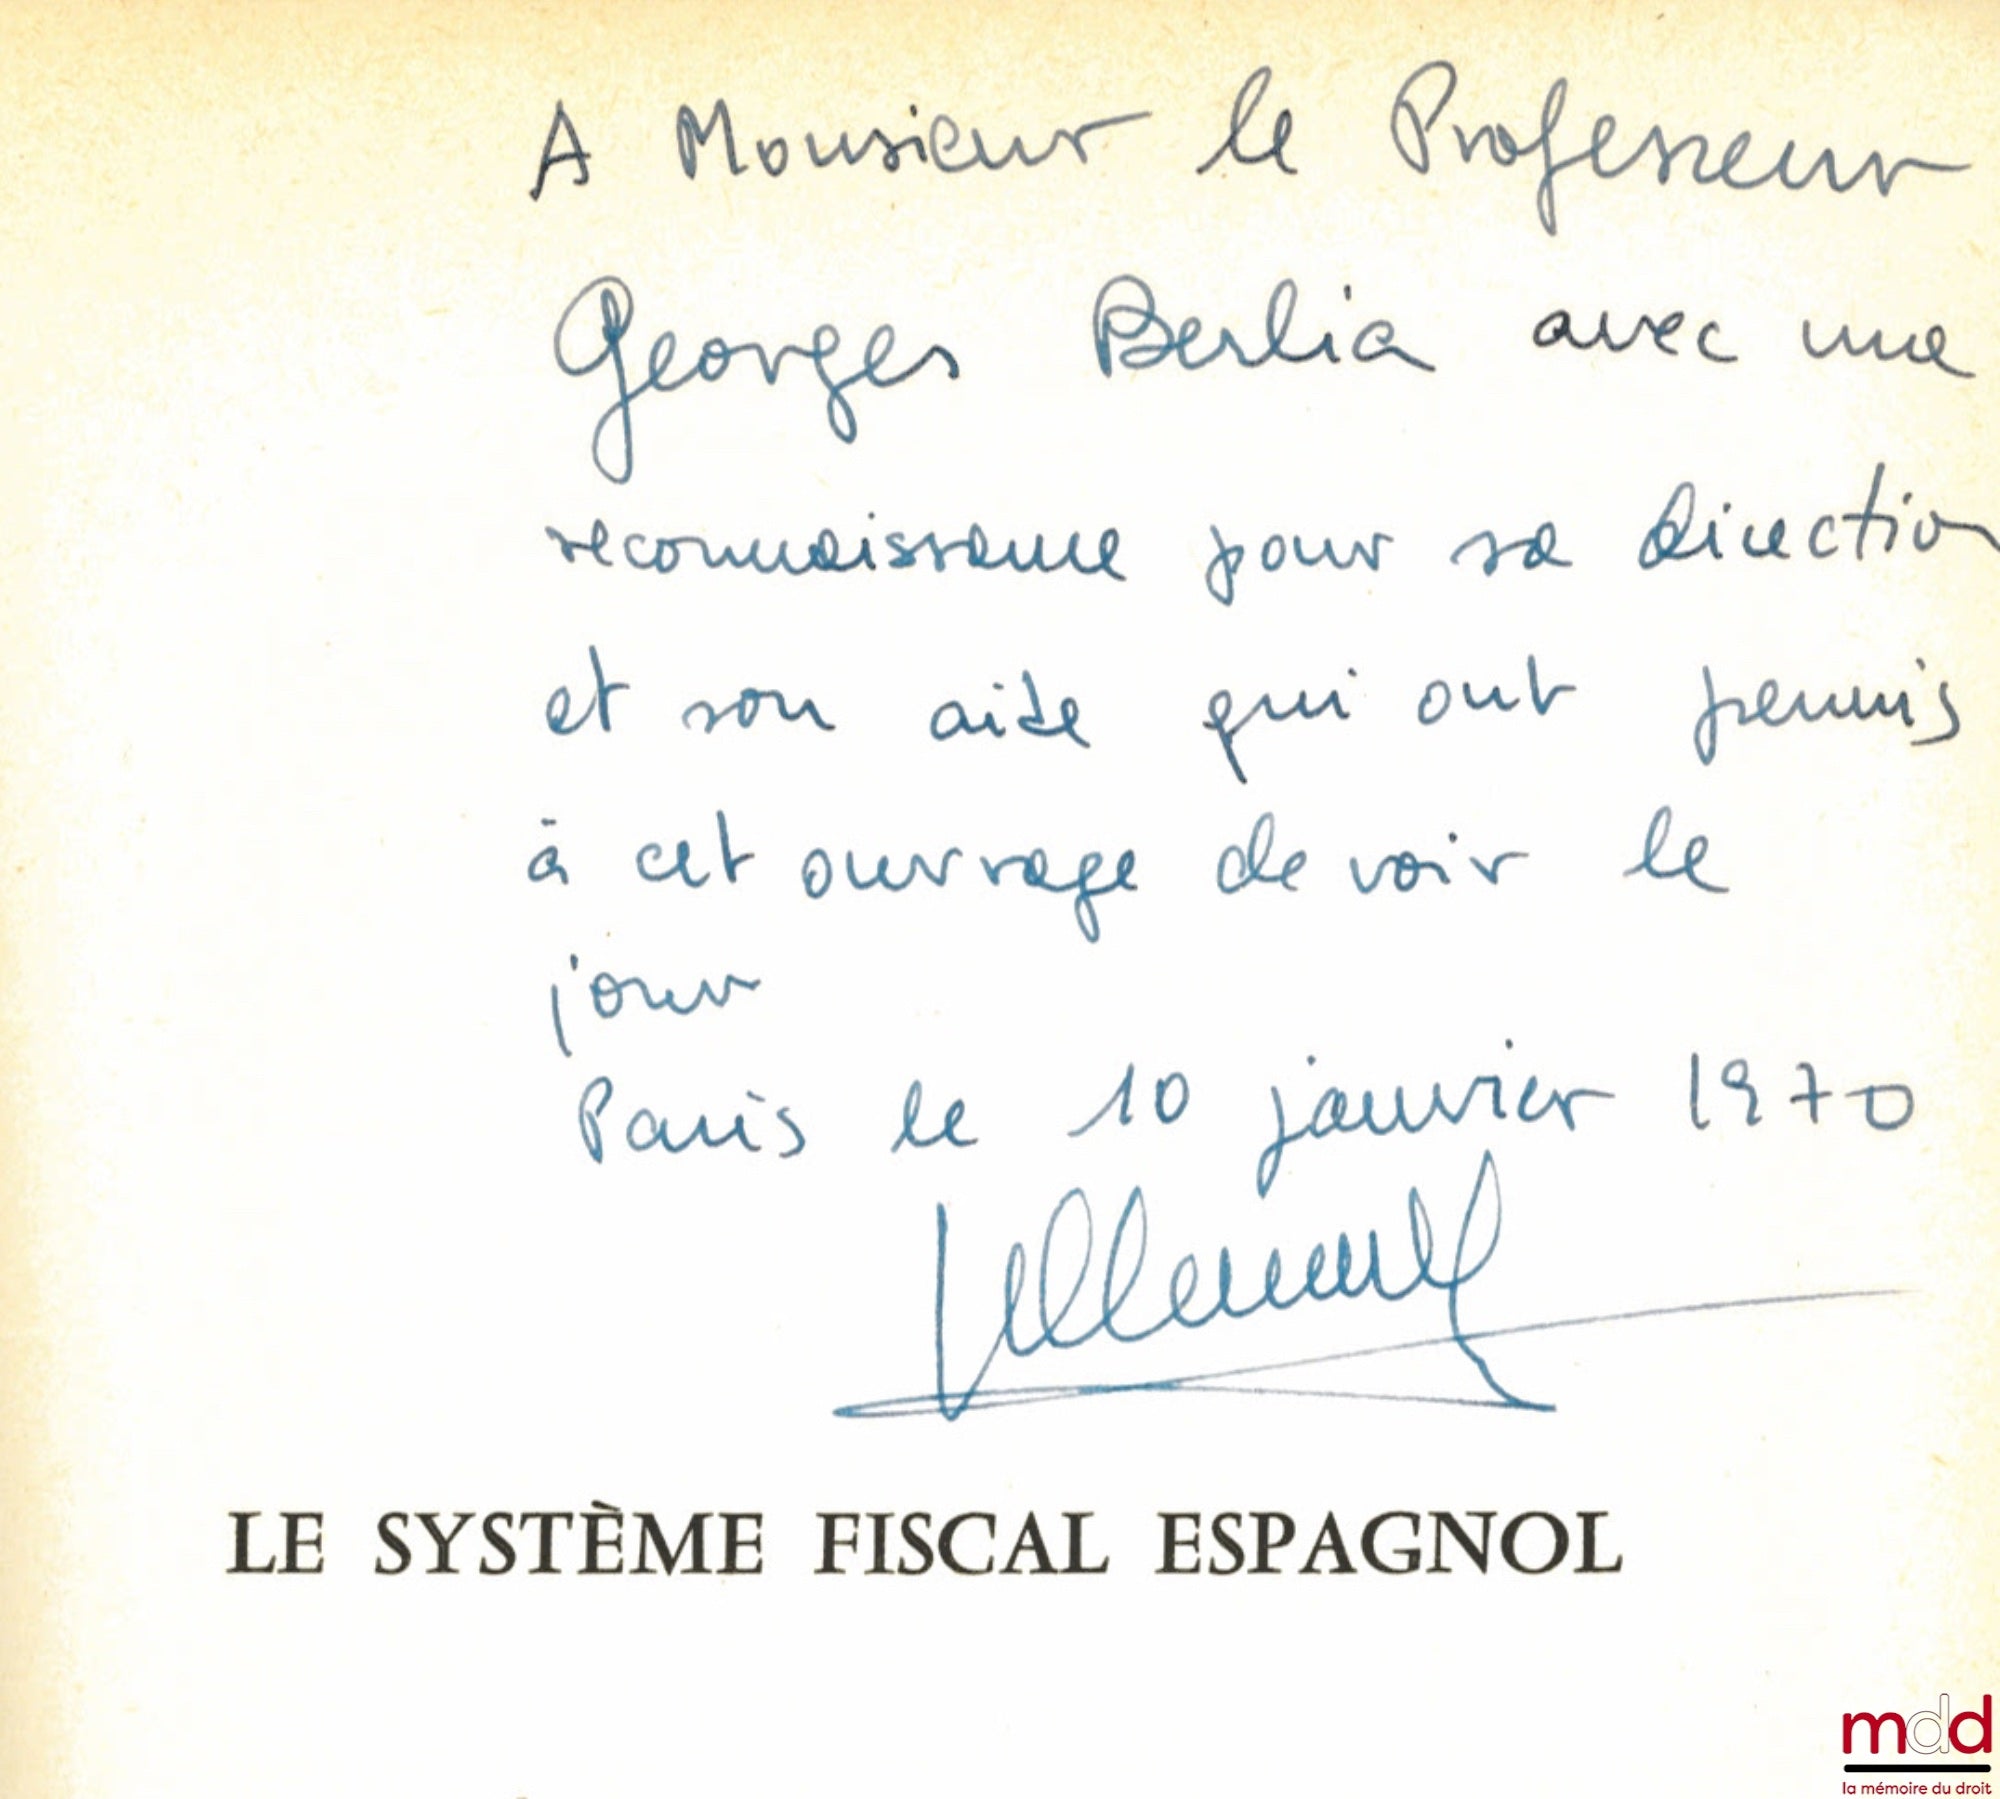 A Monsieur le Professeur
Georges Berlia avec une
reconnaissance pour sa direction
et son aide qui ont permis
à cet ouvrage de voir le
jour
Paris le 10 janvier 1970
LE SYSTÈME FISCAL ESPAGNOL
mdd
la mémoire du droit